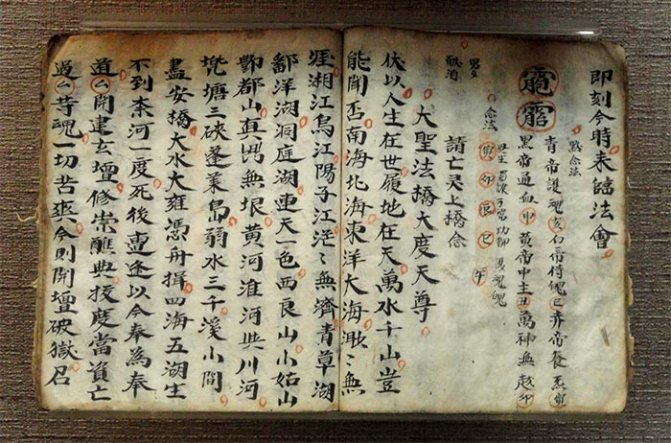 即刻今時來臨法會
默念法
青帝護魂 白帝侍魄 赤帝養炁
黑帝通血 黃帝中主 萬神無越
念法
寅卯辰巳午
請亡灵上橋念
大聖法橋大度天尊
伏以人生在世履地在天萬水千山豈
能聞否南海北海東洋大海渺〻無
涯湘江烏江陽子江茫〻無濟青草湖
鄱洋湖洞庭湖連天一色西良山小姑山
酆都山真無垠黄河淮河與川河
塘三硤蓬莱島弱水三千溪小澗
盡安橋大水大雍憑舟揖四海五湖生
不到柰河一度死後重逢以今奉為奉
道厶開建玄壇修崇醮典拔度當資亡
過厶等魂一切苦爽今則開壇破獄召